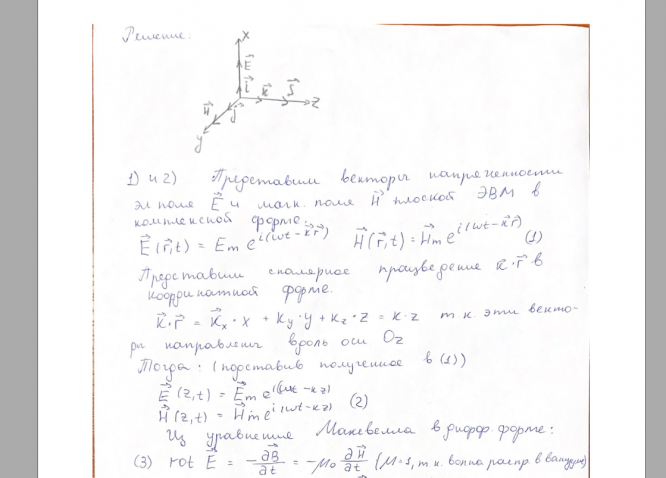 Решение:
x
E⃗
i⃗ k⃗ S⃗
z
H⃗ j⃗
y
1) и 2) Представим векторы напряженности
эл поля E⃗ и магн. поля H⃗ плоской ЭВМ в
комплексной форме:
E⃗(r⃗,t) = Em e^i(ωt - k⃗r⃗) H⃗(r⃗,t) = H⃗m e^i(ωt - k⃗r⃗) (1)
Представим скалярное произведение k⃗·r⃗ в
координатной форме.
k⃗·r⃗ = k⃗x·x + ky·y + kz·z = k·z т.к. эти векто-
ры направлены вдоль оси Oz
Тогда: (подставив полученное в (1))
E⃗(z,t) = E⃗m e^i(ωt - kz)
H⃗(z,t) = H⃗m e^i(ωt - kz) (2)
Из уравнения Максвелла в дифф. форме:
(3) rot E⃗ = -∂B⃗/∂t = -μ₀ ∂H⃗/∂t (μ=1, т.к. волна распр в вакууме)